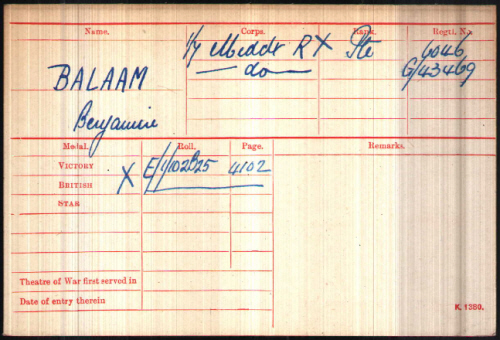 Name. Corps. Rank. Regtl. No.
1/7 Middx R X Pte 6046
— do — G/43469
BALAAM
Benjamin
Medal. Roll. Page. Remarks.
VICTORY E/1/102B25 4102
BRITISH X
STAR
Theatre of War first served in
Date of entry therein
K. 1380.